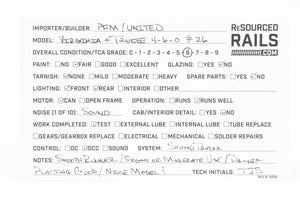 IMPORTER/BUILDER: PFM/UNITED
RESOURCED
RAILS
.COM
MODEL: VIRGINIA + TRUCKEE 4-6-0 #26
OVERALL CONDITION/TCA GRADE: C - 1 - 2 - 3 - 4 - 5 - 6 - 7 - 8 - 9
PAINT: □NO ☑FAIR □GOOD □EXCELLENT GLAZING: □YES ☑NO
TARNISH: ☑NONE □MILD □MODERATE □HEAVY SPARE PARTS: □YES ☑NO
LIGHTING: ☑FRONT □REAR □INTERIOR □OTHER:
MOTOR: ☑CAN □OPEN FRAME OPERATION: □RUNS ☑RUNS WELL
NOISE (1 OF 10): SOUND CAB/INTERIOR DETAIL: □YES ☑NO
WORK COMPLETED: ☑TEST □EXTERNAL LUBE □INTERNAL LUBE □TUBE REPLACE
□GEARS/GEARBOX REPLACE □ELECTRICAL □MECHANICAL □SOLDER REPAIRS
CONTROL: □DC ☑DCC ☑SOUND SYSTEM: SOUNDTRAXX
NOTES: SMOOTH RUNNER/SIGNS OF MODERATE USE/DRIVER
PLATING GOOD/NICE MODEL! TECH INITIALS: TJS